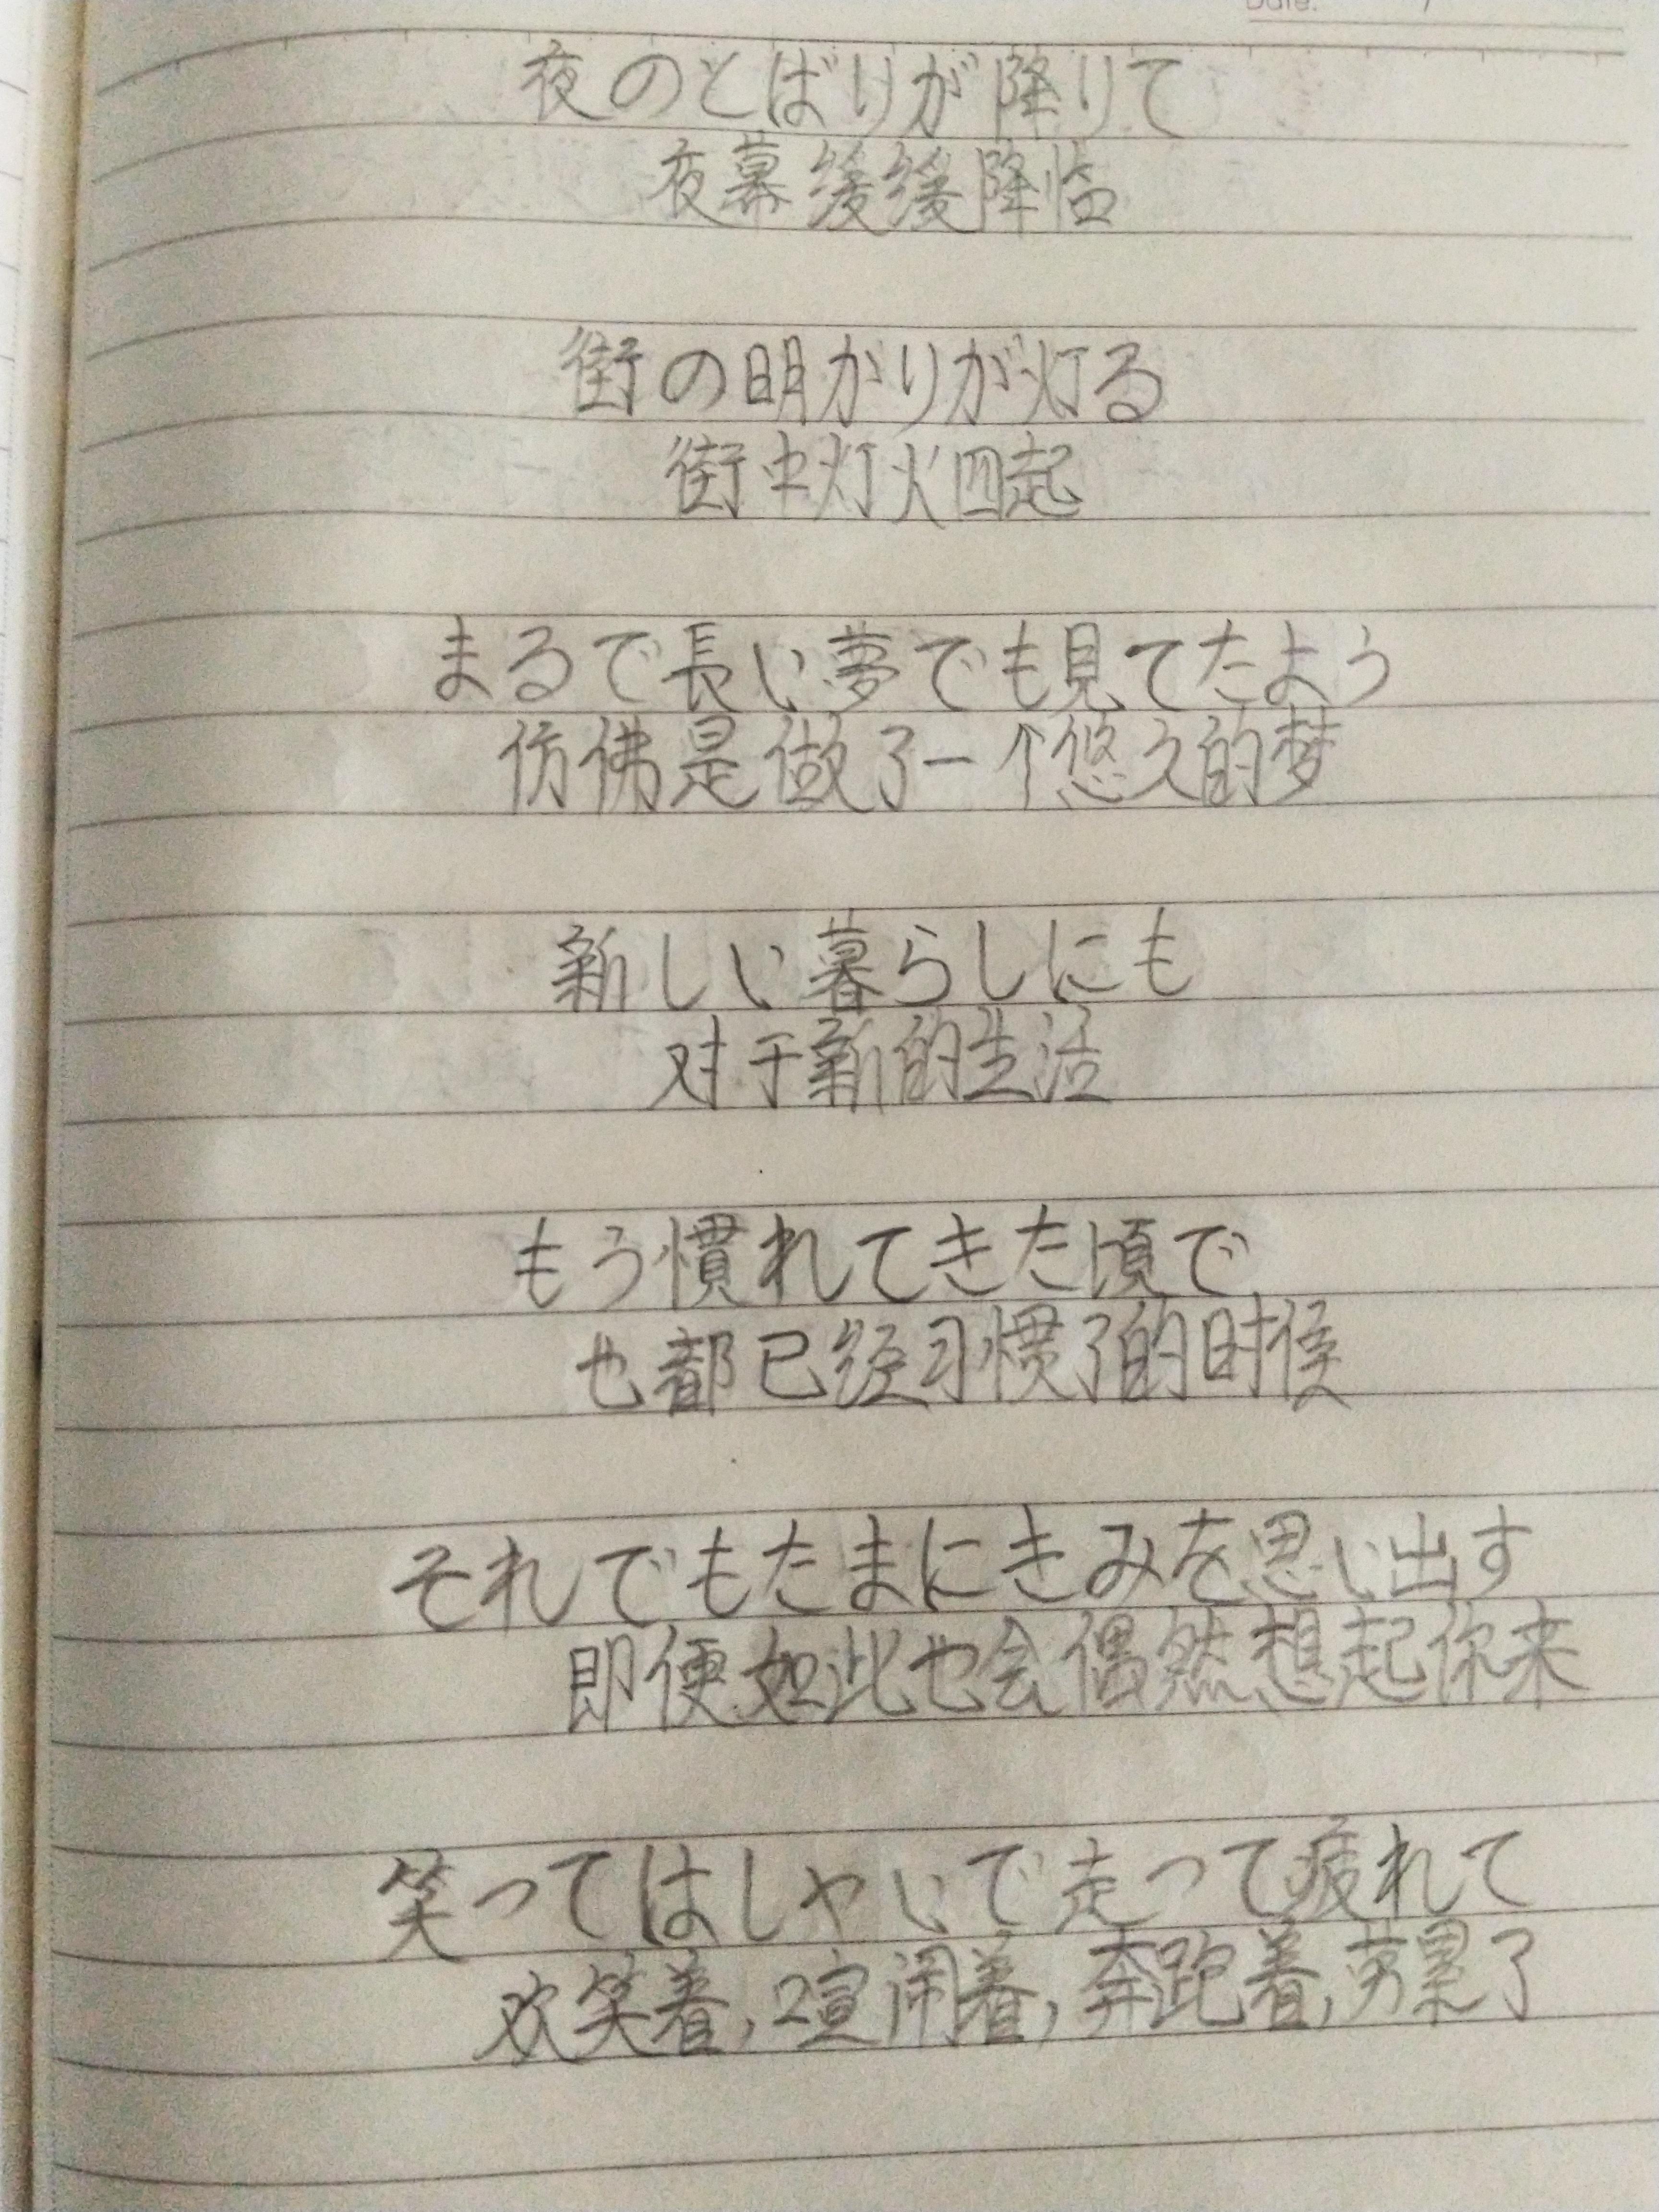 Date. /
夜のとばりが降りて
夜幕缓缓降临
街の明かりが灯る
街中灯火四起
まるで長い夢でも見てたよう
仿佛是做了一个悠久的梦
新しい暮らしにも
对于新的生活
もう慣れてきた頃で
也都已经习惯了的时候
それでもたまにきみを思い出す
即便如此也会偶然想起你来
笑ってはしゃいで走って疲れて
欢笑着,喧闹着,奔跑着,劳累了